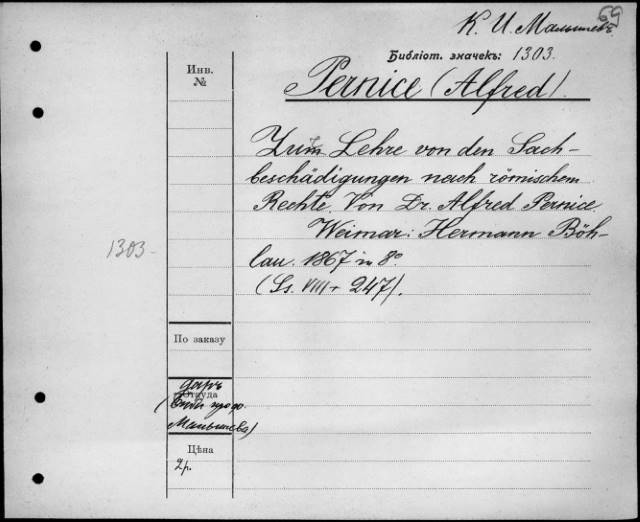 К. И. Малышевъ.
69
Библіот. значекъ: 1303.
Инв.
№
Pernice (Alfred).
Zur Lehre von den Sach-
beschädigungen nach römischem
Rechte. Von Dr. Alfred Pernice.
Weimar: Hermann Böh-
lau. 1867 in 8°.
(Ss. VIII + 247).
1303.
По заказу
Даръ
Откуда
Малышева)
Цѣна
2 р.